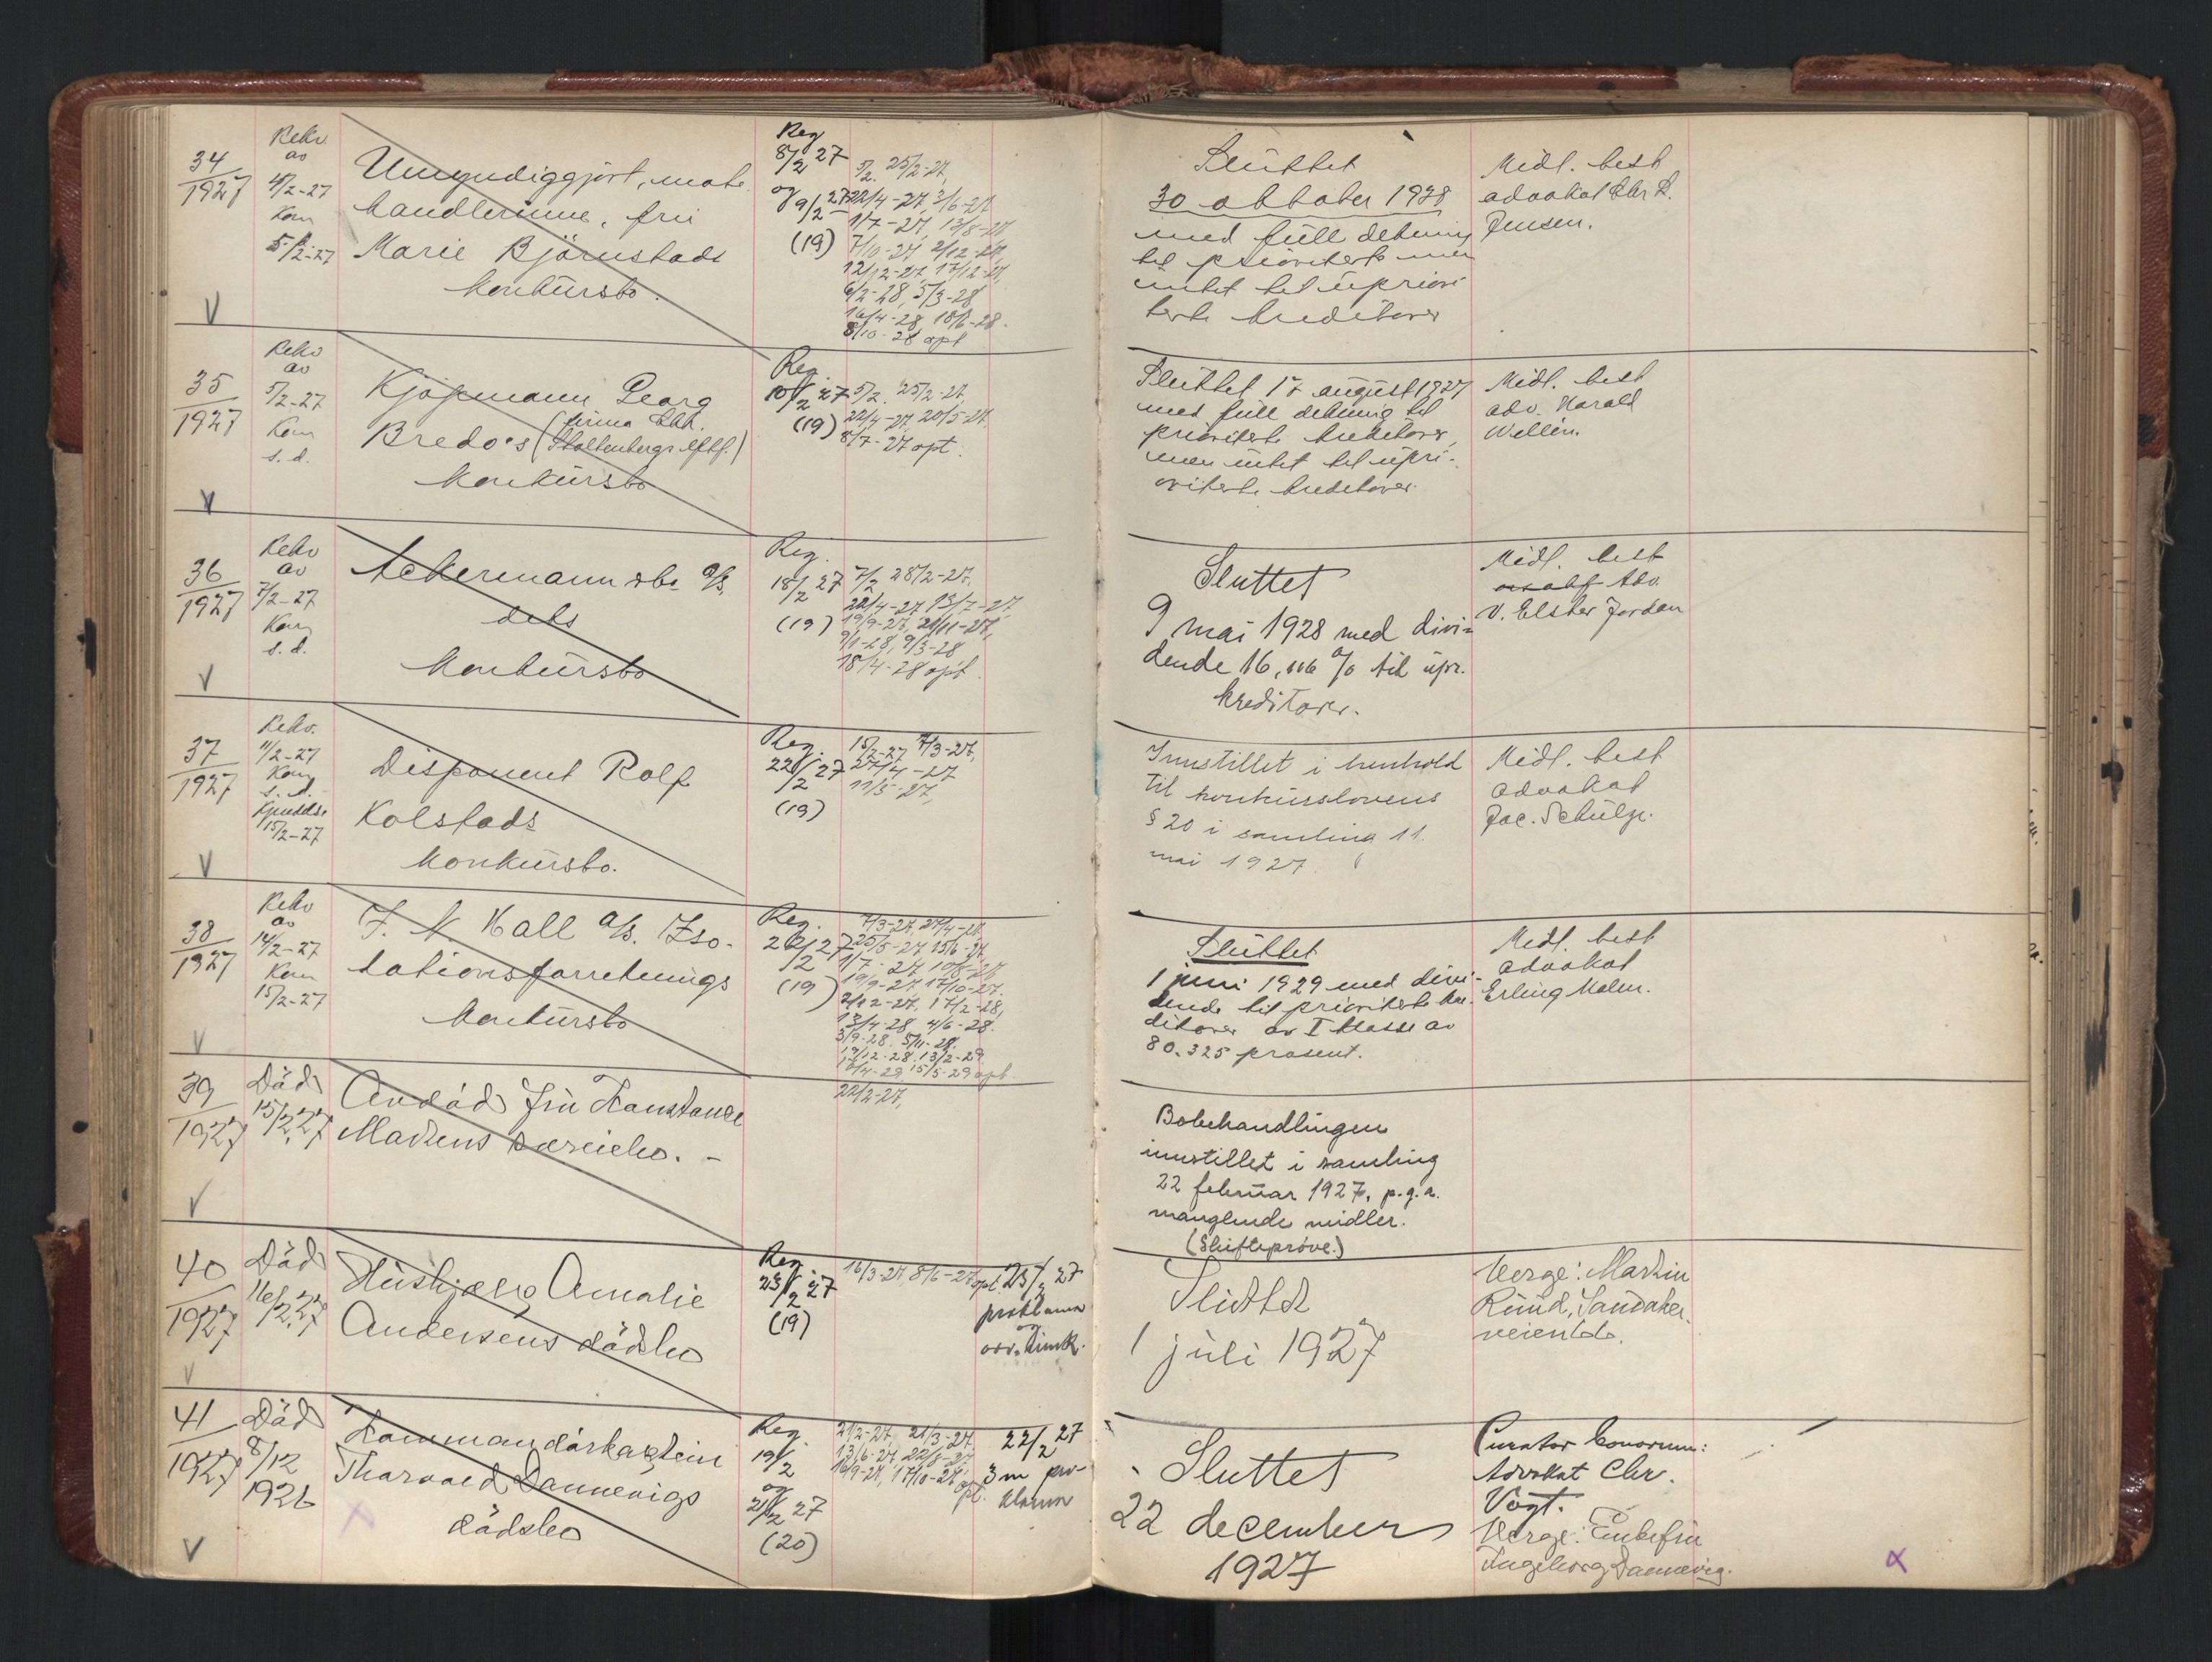 34
1927
Rekv.
av
4/2-27
Konk
5/2-27
Umyndiggjort, mote
handlerinne, frü
Marie Björnstads
konkürsbo.
Reg
8/2 27
og 9/2 27
(19)
5/2. 25/2-27,
22/4-27, 3/6-27
1/7-27, 13/8-27
7/10-27, 2/12-27,
12/12-27, 17/12-27,
6/2-28, 5/3-28
16/4-28, 18/6-28.
8/10-28 opt
Slüttet
30 oktober 1928
med füll dekning
til prioriterte men
intet til üpriori
terte kreditorer
Midl. best
advokat Chr. L.
Jensen.
V
35
1927
Rekv
av
5/2-27
Konk
s. d.
Kjøpmann Georg
Bredo's (firma Chr.
Stoltenbergs eftf.)
konkürsbo
Reg.
10/2 27
(19)
5/2. 25/2-27,
22/4-27, 20/5-27
8/7-27 opt.
Slüttet 17 aügüst 1927
med füll dekning til
prioriterte kreditorer,
men intet til üpri-
oriterte kreditorer.
Midl. best
adv. Harald
Wellén.
V
36
1927
Rekv
av
7/2-27
Konk
s. d.
Ackermann & Co A/S,
dets
konkürsbo
Reg.
18/2 27
(19)
7/2 28/2-27,
22/4-27, 13/7-27
19/9-27, 21/11-27,
9/1-28, 9/3-28
18/4-28 opt.
Sluttet
9 mai 1928 med divi-
dende 16,116 % til üpr.
kreditorer.
Midl. best
Adv.
V. Elster Jordan
V
37
1927
Rekv.
11/2-27
Konk
s. d.
Kjendels.
15/2-27
Disponent Rolf
Kolstads
konkürsbo.
Reg.
22/2 27
(19)
15/2-27 7/3-27,
27/4-27
11/5-27,
Innstillet i henhold
til konkurslovens
§ 20 i samling 11.
mai 1927.
Midl. best
advokat
Jac. Schülze.
V
38
1927
Rekv
av
14/2-27
Konk
15/2-27
J. N. Hall A/S. Iso-
lationsforretnings
konkürsbo
Reg.
22/2 27
(19)
7/3-27, 27/4-27
25/5-27 15/6-27,
1/7-27, 10/8-27
19/9-27, 17/10-27.
2/12-27, 17/2-28,
13/4-28, 4/6-28.
3/9-28. 5/11-28.
19/12-28. 13/2-29.
17/4-29. 15/5-29 opt.
Slüttet
1 juni 1929 med divi-
dende til prioriterte kre
ditorer av I klasse av
80.325 prosent.
Midl. best
advokat
Erling Malm.
V
39
1927
Död
15/2.27
Avdöd frü Konstance
Madsens særiebo. -
22/2-27,
Bobehandlingen
innstillet i samling
22 februar 1927, p.g.a.
manglende midler.
(Skifteprøve.)
V
40
1927
Död
16/2.27
Hüshjelp Amalie
Andersens dödsbo
Reg
23/2 27
(19)
16/3-27, 8/6-27 opt.
23/2 27
proklama
og
arv. innk.
Slüttet
1 juli 1927
Verge: Martin
Rüüd, Sandaker
veien
V
41
1927
Död
8/12
1926
Kommandörkaptein
Thorvald Dannevigs
dödsbo
Reg.
19/2
og
21/2 27
(20)
21/2-27, 21/3-27,
13/6-27, 22/8-27,
16/9-27, 17/10-27,
opt.
22/2 27
3 m pro-
klama
Sluttet
22 december
1927
Curator bonorum:
Advokat Chr.
Vogt.
Verge: Enkefrü
Ingeborg Dannevig.
V